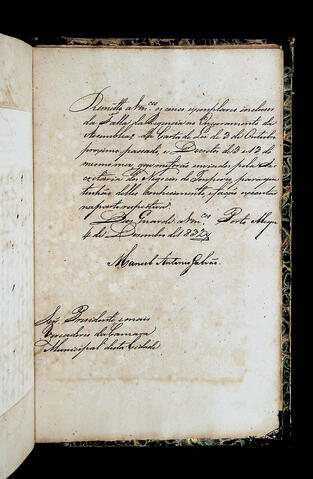 Remetto a Vm.ces os cinco exemplares inclusos
da Falla da Regencia no Encerramento da
Assemblea, da Carta de Lei de 3 de Outubro
proximo passado, e Decreto de 2 e 13 do
mesmo mez que me forão enviados pela Se
cretaria dos Negocios do Imperio para que
tenhão delles conhecimento, e fação executar
na parte respectiva.
Deos Guarde a Vm.ces Porto Alegre
4 de Dezembro de 1832
Manoel Antonio Galvão.
Snr.s Presidente e mais
Vereadores da Camara
Municipal desta Cidade